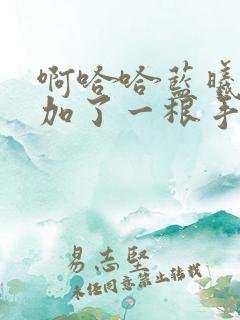 啊哈哈蓝曦
加了一根手
易志坚
未经同意禁止转载